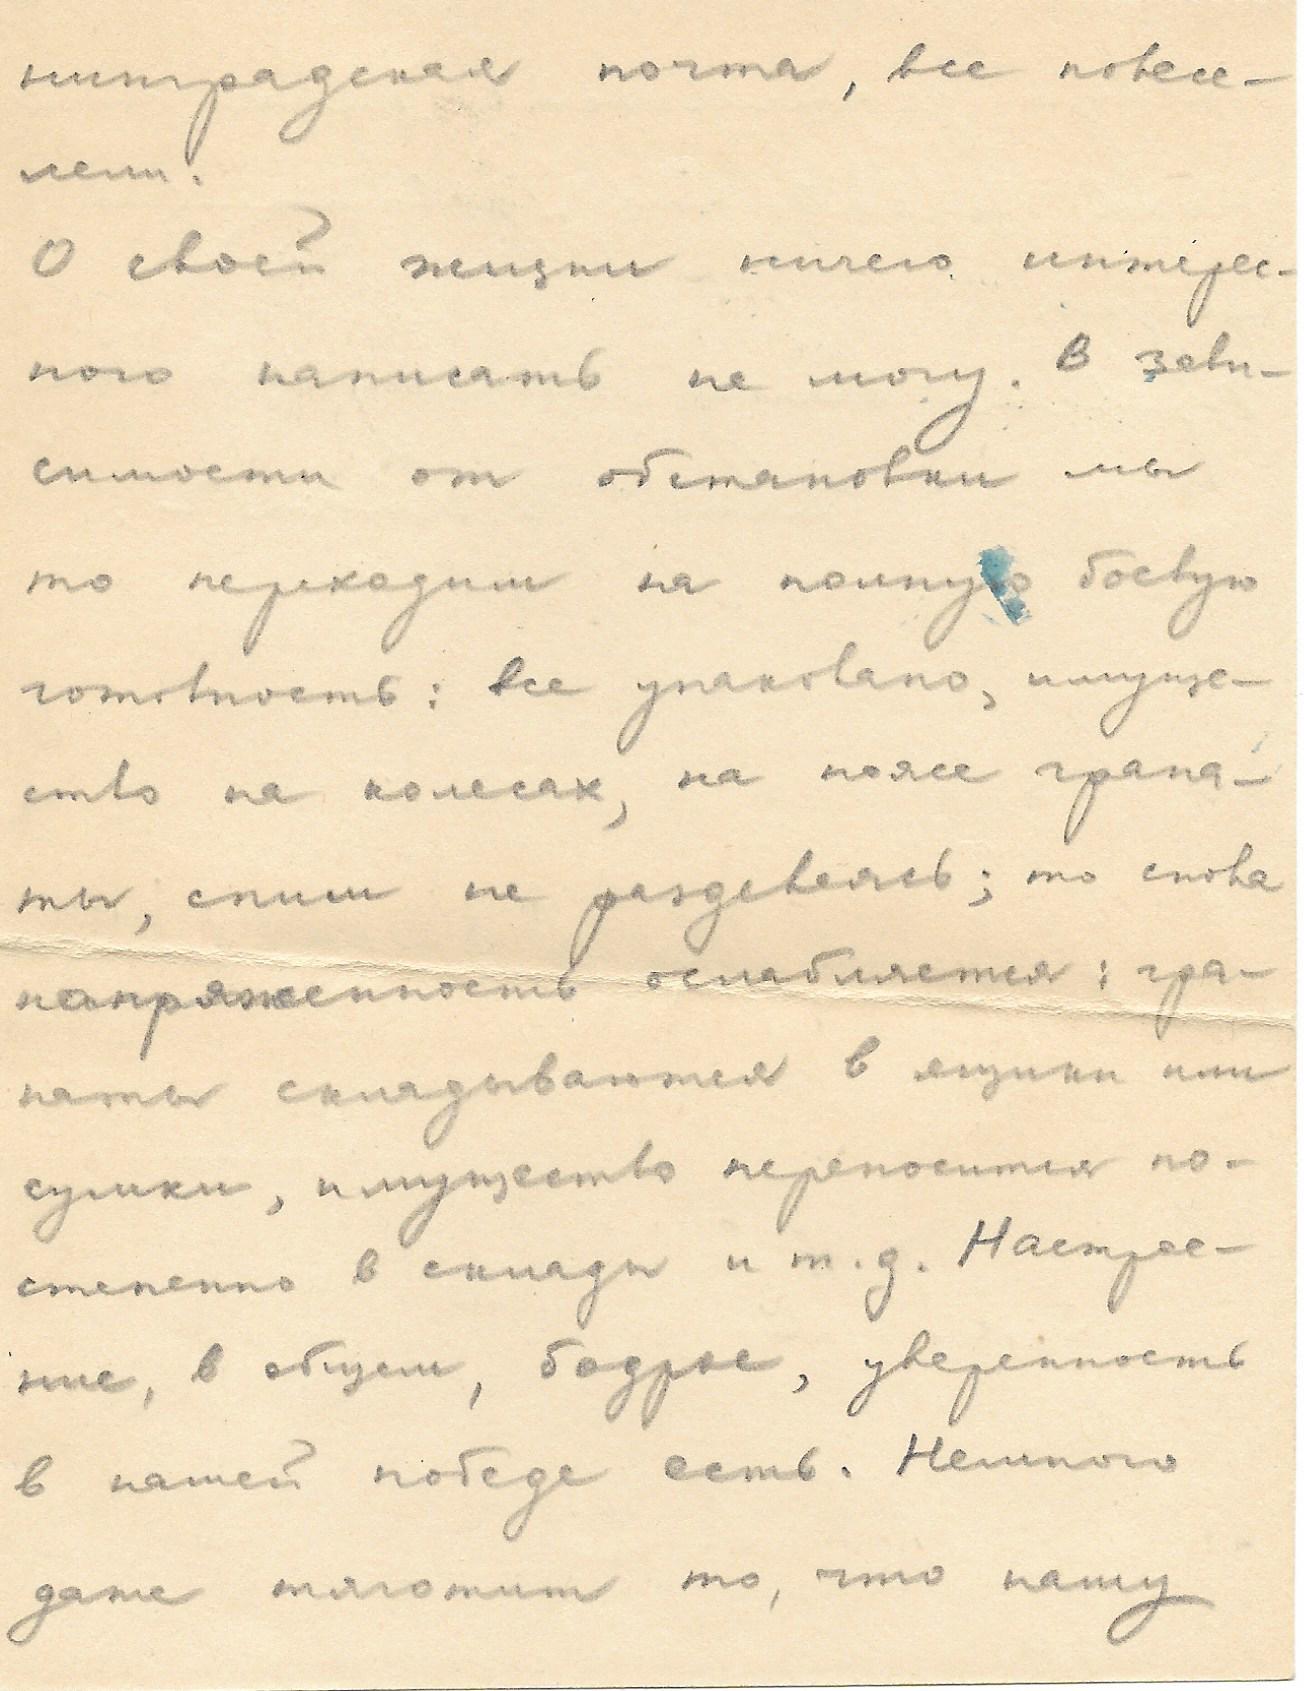 нинградская почта, все повесе-
лели.
О своей жизни ничего интерес-
ного написать не могу. В зави-
симости от обстановки мы
то переходим на полную боевую
готовность: все упаковано, имуще-
ство на колесах, на поясе грана-
ты, спим не раздеваясь; то снова
напряженность ослабляется: гра-
наты складываются в ящики или
сумки, имущество переносится по-
степенно в склады и т.д. Настрое-
ние, в общем, бодрое, уверенность
в нашей победе есть. Немного
даже тяготит то, что нашу